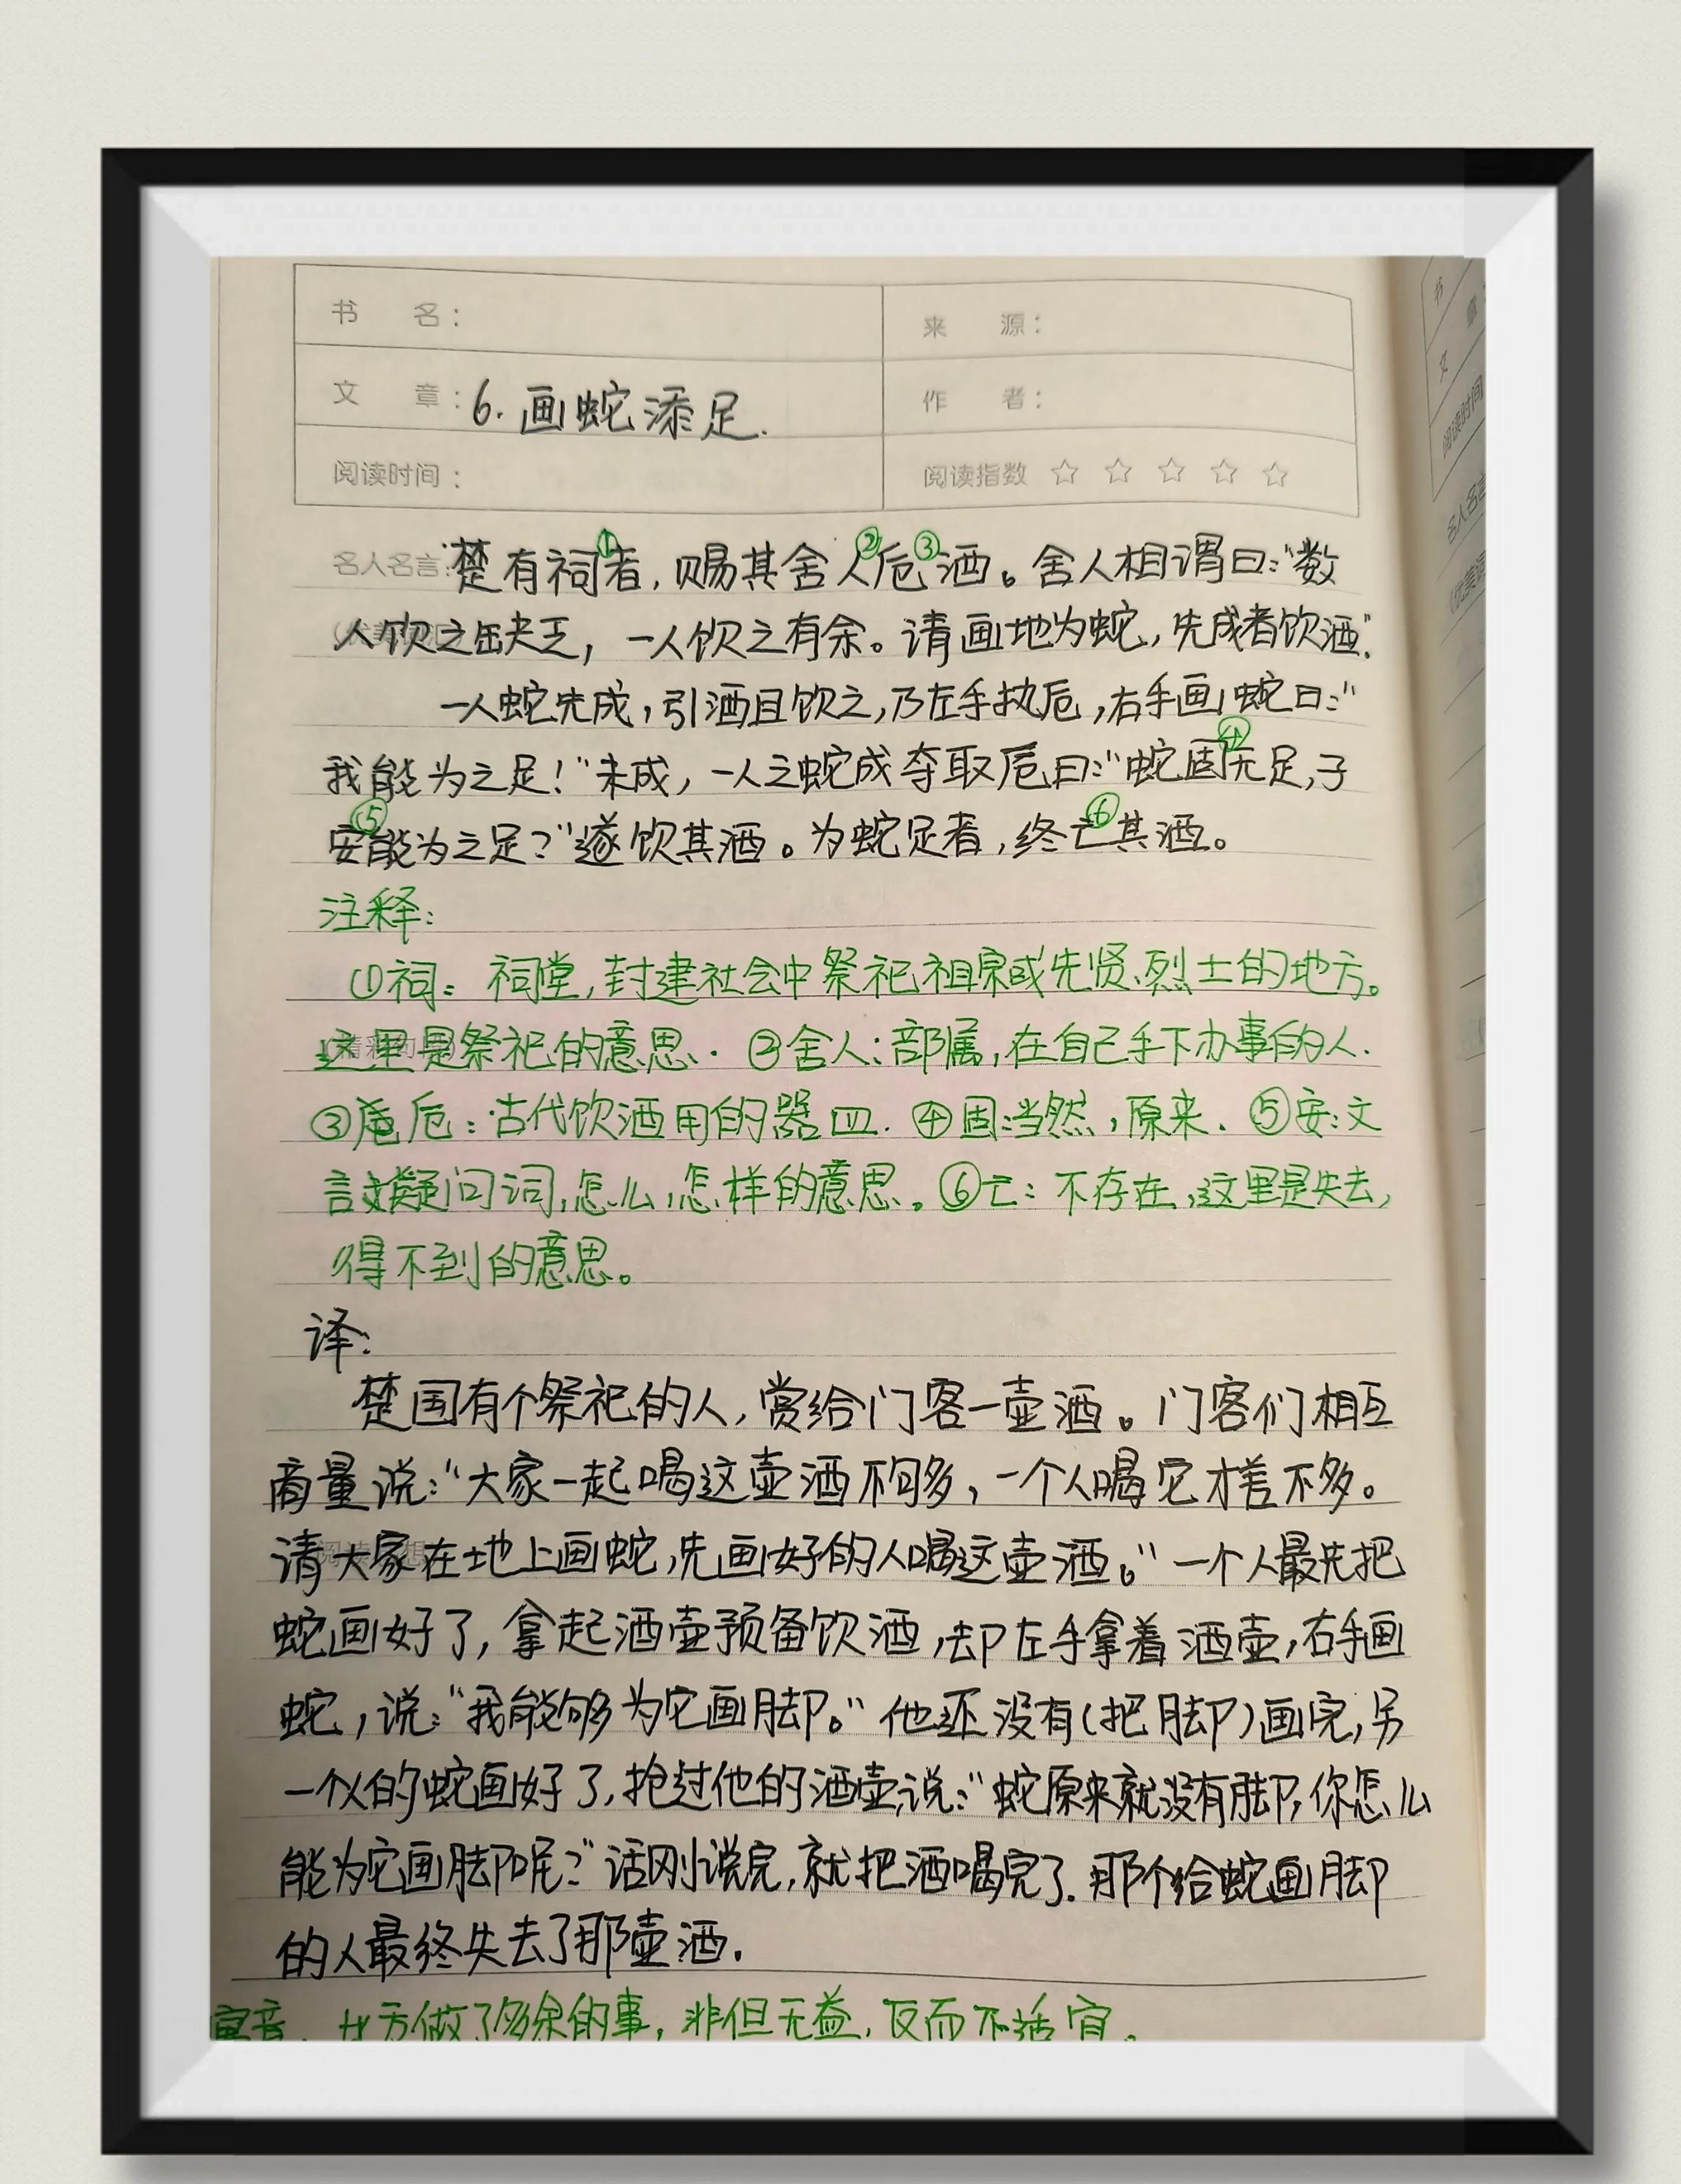 书 名：
来 源：
文 章：6. 画蛇添足.
作 者：
阅读时间：
阅读指数 ☆ ☆ ☆ ☆ ☆
名人名言：
"楚有祠①者，赐其舍人②卮③酒。舍人相谓曰："数
人饮之缺乏，一人饮之有余。请画地为蛇，先成者饮酒".
一人蛇先成，引酒且饮之，乃左手执卮，右手画蛇曰："
我能为之足！"未成，一人之蛇成夺取卮曰："蛇固④无足，子
安⑤能为之足？"遂饮其酒。为蛇足者，终亡⑥其酒。
注释：
①祠：祠堂，封建社会中祭祀祖宗或先贤、烈士的地方。
这里是祭祀的意思. ②舍人：部属，在自己手下办事的人.
③卮：古代饮酒用的器皿. ④固：当然，原来. ⑤安：文
言疑问词，怎么，怎样的意思。⑥亡：不存在，这里是失去，
得不到的意思。
译：
楚国有个祭祀的人，赏给门客一壶酒。门客们相互
商量说："大家一起喝这壶酒不够，一个人喝它才差不多。
请大家在地上画蛇，先画好的人喝这壶酒。"一个人最先把
蛇画好了，拿起酒壶预备饮酒，却左手拿着酒壶，右手画
蛇，说："我能够为它画脚。"他还没有(把脚)画完，另
一个人的蛇画好了，抢过他的酒壶，说："蛇原来就没有脚，你怎么
能为它画脚呢？"话刚说完，就把酒喝完了.那个给蛇画脚
的人最终失去了那壶酒.
做了多余的事，非但无益，反而不适宜。